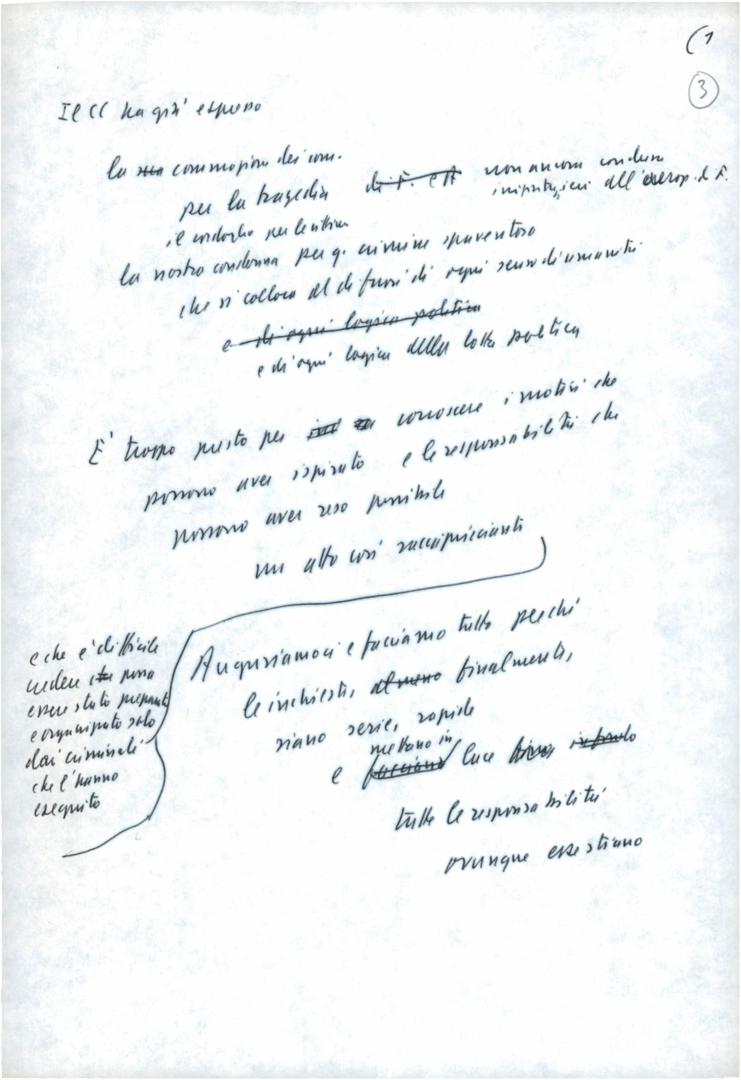 (1
3
Il CC ha già espresso
la sua commozione dei com.
per la tragedia di F. non ancora conclusa
all'aerop. di F.
il cordoglio per le vittime
la nostra condanna per q. crimine spaventoso
che si colloca al di fuori di ogni senso di umanità
e di ogni logica politica
e di ogni logica della lotta politica
E' troppo presto per conoscere i motivi che
possono aver ispirato e le responsabilità che
possono aver reso possibile
un atto così raccapricciante
e che è difficile
credere che possa
essere stato preparato
e organizzato solo
dai criminali
che l'hanno
eseguito
Auguriamoci e facciamo tutto perché
le inchieste, almeno finalmente,
siano serie, rapide
mettano in
e facciano luce
tutte le responsabilità
ovunque esse stiano